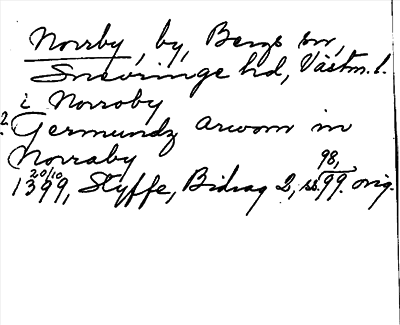 Norrby, by, Bergs sn,
Snevringe hd, Västm. l.
i Norroby
2. Germundz arwom in
Norraby
1399 20/10, Styffe, Bidrag 2, ss. 98, 99. orig.